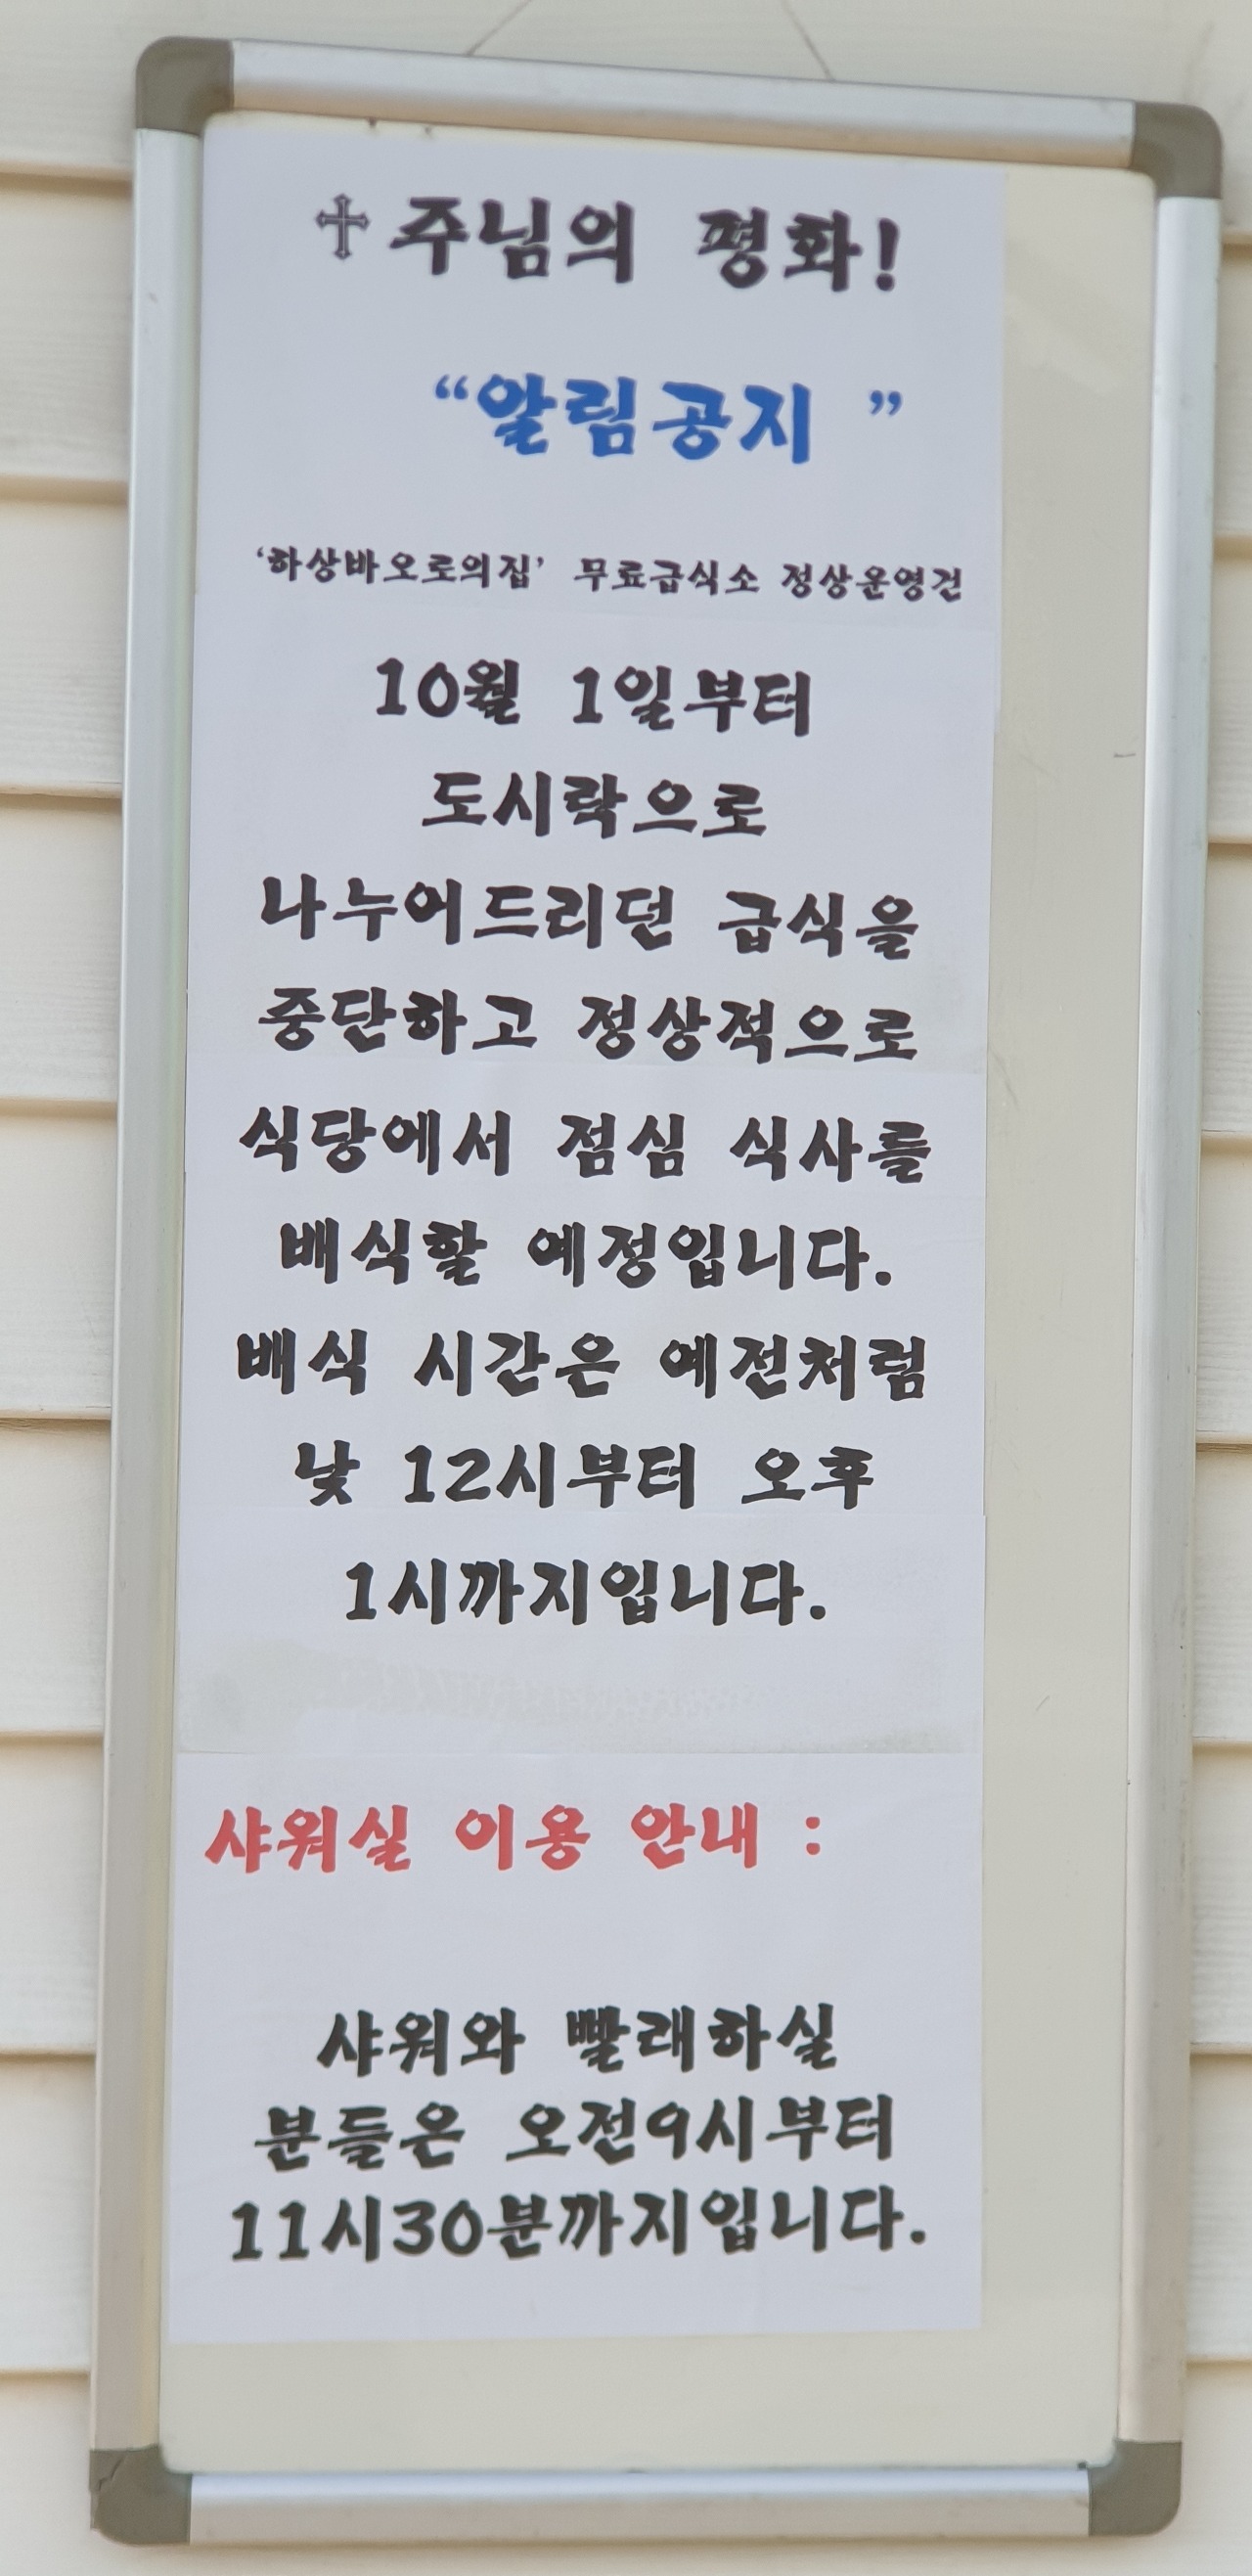 ✝주님의 평화!
“알림공지 ”
‘하상바오로의집’ 무료급식소 정상운영건
10월 1일부터
도시락으로
나누어드리던 급식을
중단하고 정상적으로
식당에서 점심 식사를
배식할 예정입니다.
배식 시간은 예전처럼
낮 12시부터 오후
1시까지입니다.
샤워실 이용 안내 :
샤워와 빨래하실
분들은 오전9시부터
11시30분까지입니다.